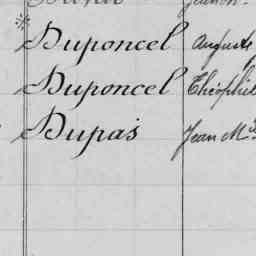 Duponcel Auguste
Duponcel Théophil
Dupas Jean M